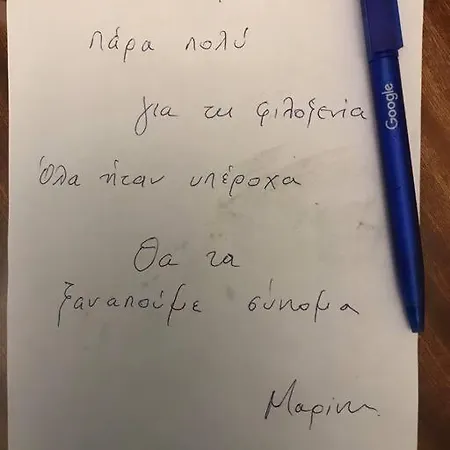 πάρα πολύ
για τη φιλοξενία
Όλα ήταν υπέροχα
Θα τα
ξαναπούμε σύντομα
Μαρίνα
Google